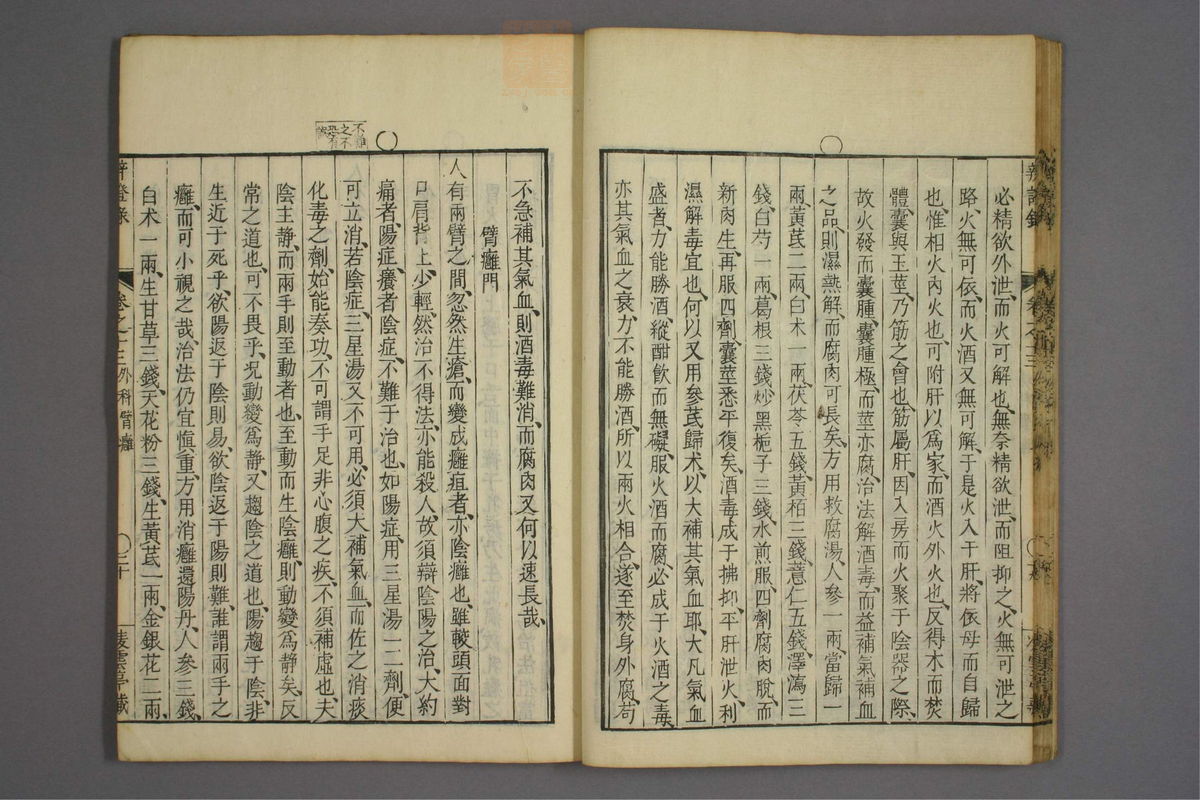 必精欲外泄、而火可解也、無奈精欲泄、而阻抑之、火無可泄之
路、火無可依、而火酒又無可解、于是火入于肝、將依母而自歸
也、惟相火內火也、可附肝以爲家、而酒火外火也、反得木而焚
體、囊與玉莖、乃筋之會也、筋屬肝、因入房而火聚于陰器之際、
故火發而囊腫、囊腫極、而莖亦腐、治法解酒毒、而益補氣補血
之品、則濕熱解、而腐肉可長矣、方用救腐湯、人參一兩、當歸一
兩、黃芪二兩、白术一兩、茯苓五錢、黃栢三錢、薏仁五錢、澤瀉三
錢、白芍一兩、葛根三錢、炒黑梔子三錢、水煎服、四劑腐肉脫、而
新肉生、再服四劑、囊莖悉平復矣、酒毒成于拂抑、平肝泄火、利
濕解毒宜也、何以又用參芪歸术、以大補其氣血耶、大凡氣血
盛者、力能勝酒、縱酣飲而無礙、服火酒而腐、必成于火酒之毒、
亦其氣血之衰、力不能勝酒、所以兩火相合、遂至焚身外腐、苟
不急補其氣血、則酒毒難消、而腐肉又何以速長哉、
臂癰門
人有兩臂之間、忽然生瘡、而變成癰疽者、亦陰癰也、雖較頭面對
口、肩背上、少輕、然治不得法、亦能殺人、故須辯陰陽之治、大約
痛者、陽症、癢者陰症、不難于治也、如陽症、用三星湯一二劑、便
可立消、若陰症、三星湯又不可用、必須大補氣血、而佐之消痰
化毒之劑、始能奏功、不可謂手足非心腹之疾、不須補虛也、夫
陰主靜、而兩手則至動者也、至動而生陰癰、則動變爲靜矣、反
常之道也、可不畏乎、况動變爲靜、又趨陰之道也、陽趨于陰、非
生近于死乎、欲陽返于陰則易、欲陰返于陽則難、誰謂兩手之
癰、而可小視之哉、治法仍宜慎重、方用消癰還陽丹、人參三錢、
白术一兩、生甘草三錢、天花粉三錢、生黃芪一兩、金銀花二兩、
辨證錄
卷之十三 外科臂癰
三十